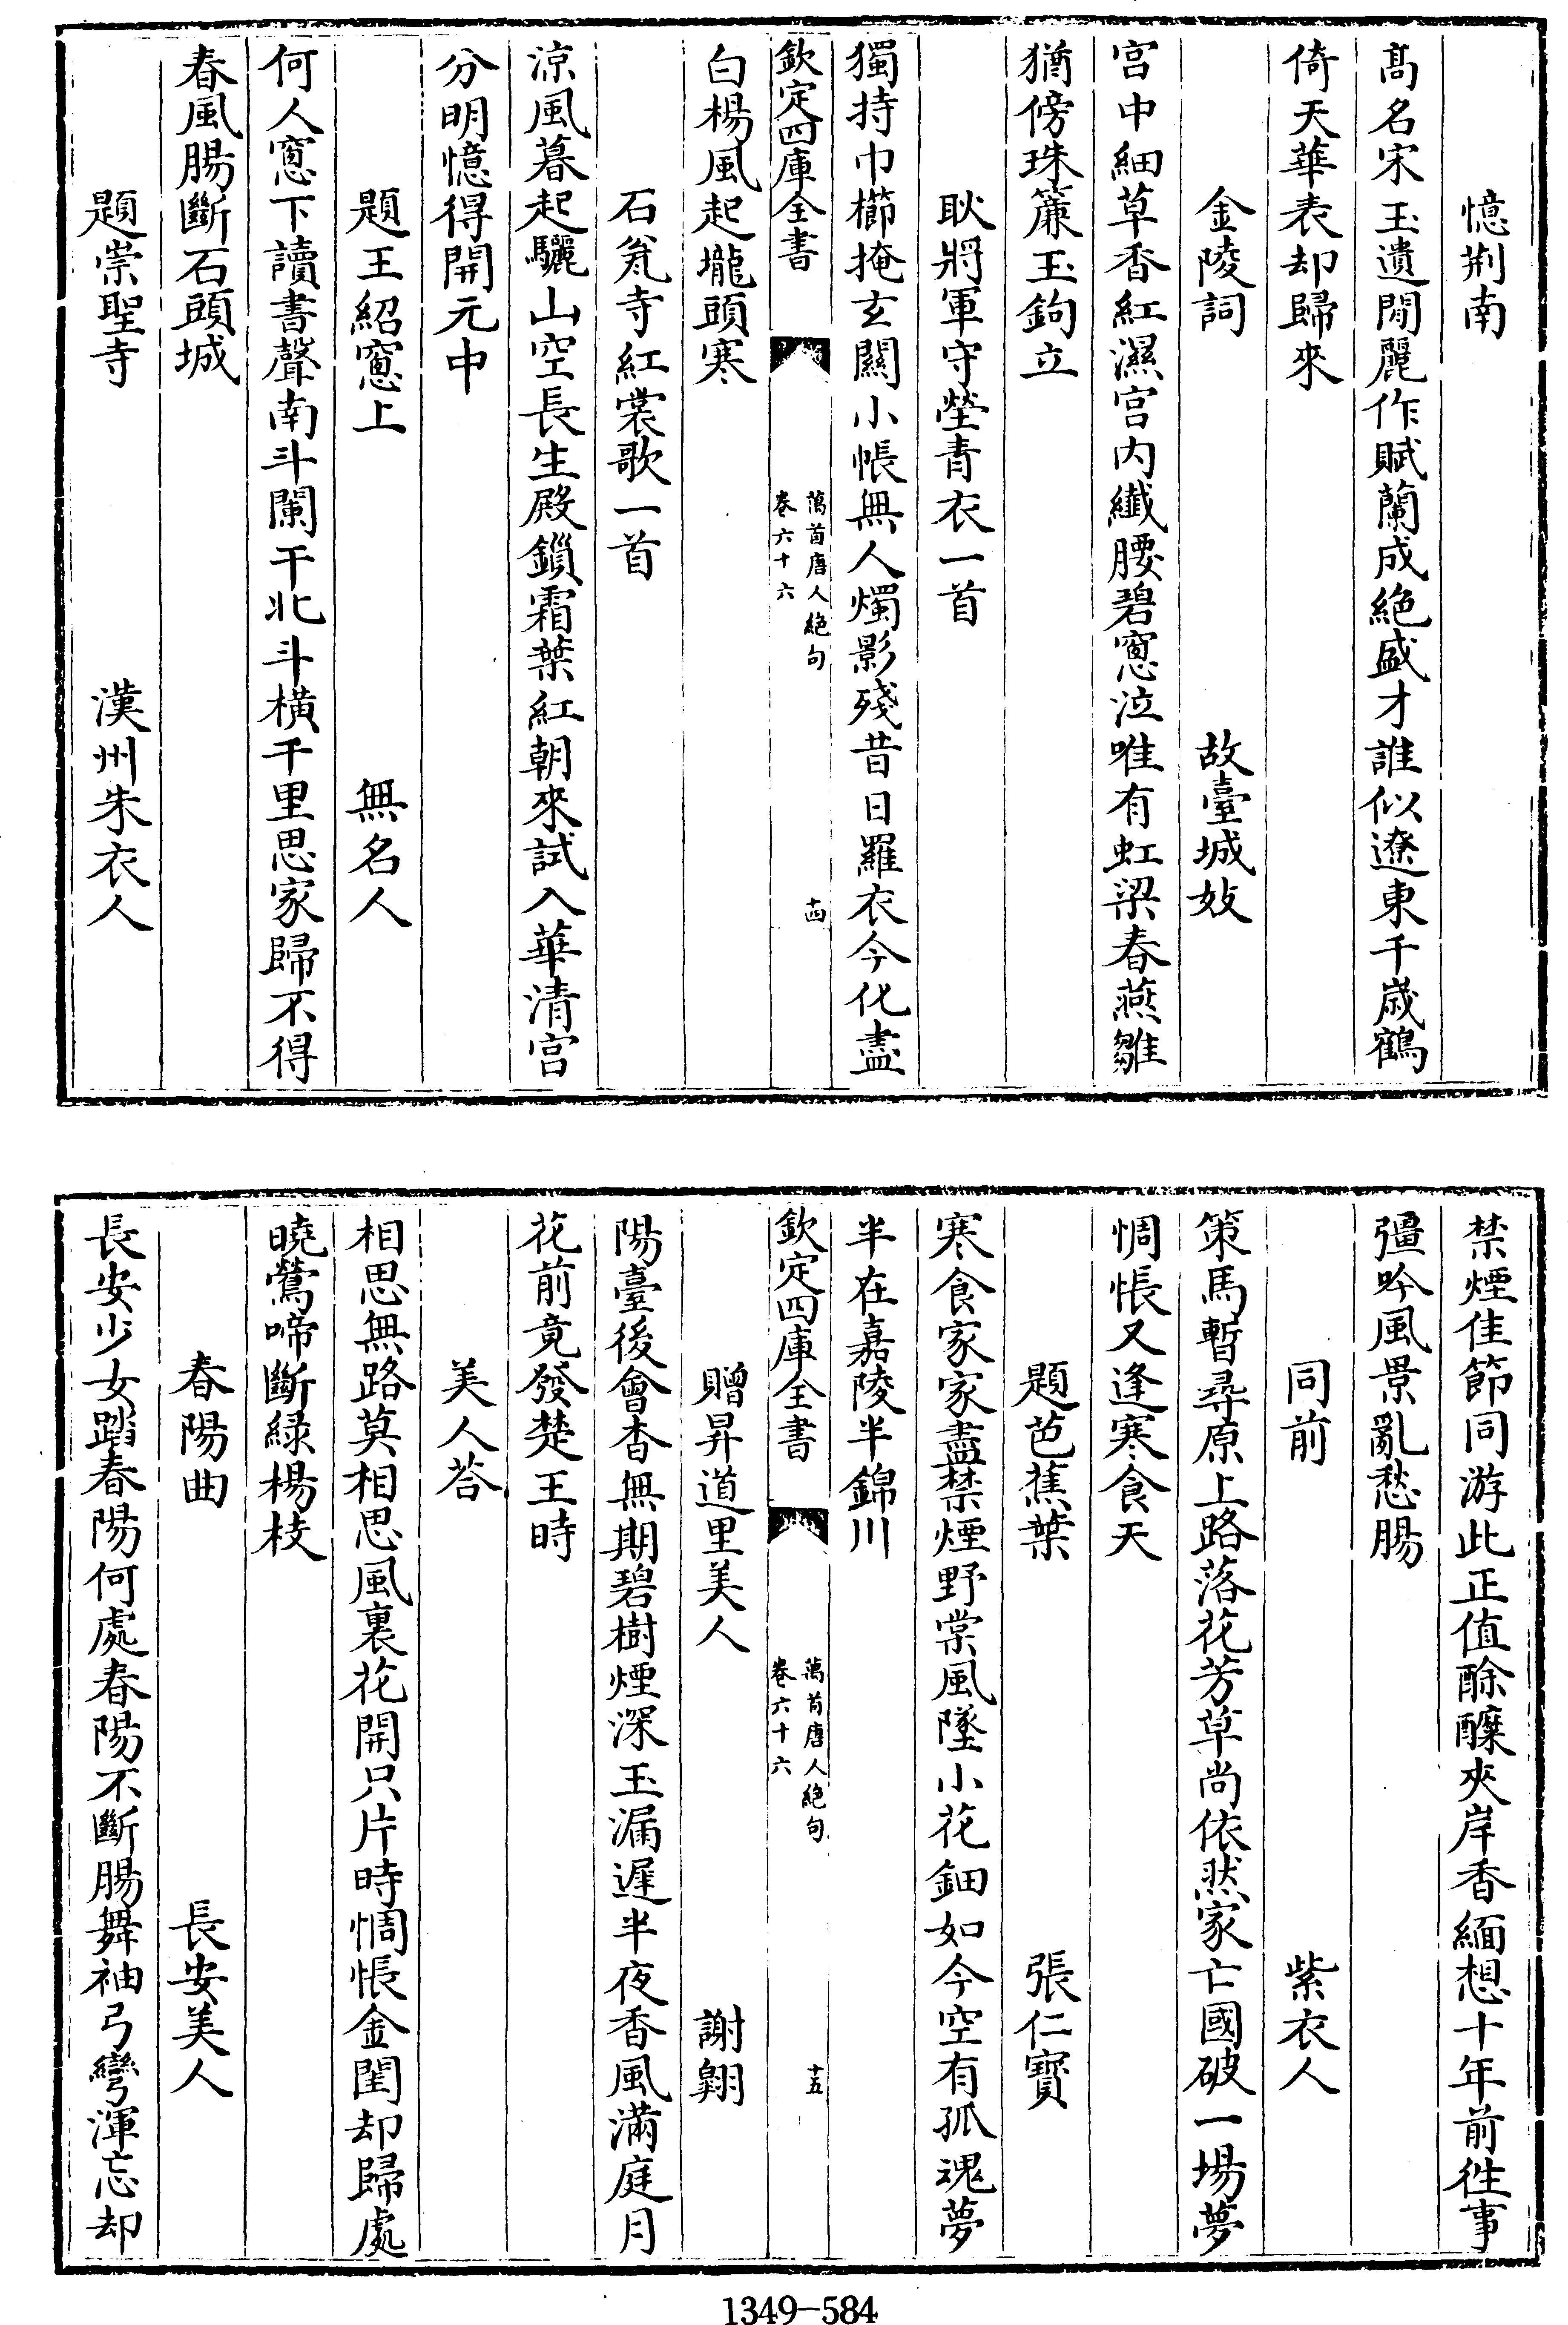 憶荆南
髙名宋玉遺閒麗作賦蘭成絶盛才誰似遼東千嵗鶴
倚天華表却歸來
金陵詞 故臺城妓
宫中細草香紅濕宫内纎腰碧窻泣唯有虹梁春燕雛
猶傍珠簾玉鉤立
耿將軍守塋青衣一首
獨持巾櫛掩玄闗小帳無人燭影殘昔日羅衣今化盡
欽定四庫全書 萬首唐人絶句 卷六十六 十四
白楊風起壠頭寒
石瓮寺紅裳歌一首
凉風暮起驪山空長生殿鎻霜葉紅朝來試入華清宫
分明憶得開元中
題王紹窻上 無名人
何人窻下讀書聲南斗闌干北斗横千里思家歸不得
春風腸斷石頭城
題崇聖寺 漢州朱衣人
禁煙佳節同游此正值酴醿夾岸香緬想十年前徃事
彊吟風景亂愁腸
同前 紫衣人
策馬暫尋原上路落花芳草尚依然家亡國破一塲夢
惆悵又逢寒食天
題芭蕉葉 張仁寳
寒食家家盡禁煙野棠風墜小花鈿如今空有孤魂夢
半在嘉陵半錦川
欽定四庫全書 萬首唐人絶句 卷六十六 十五
贈昇道里美人 謝翺
陽臺後會杳無期碧樹煙深玉漏遲半夜香風滿庭月
花前竟發楚王時
美人荅
相思無路莫相思風裏花開只片時惆悵金閨却歸處
曉鶯啼斷緑楊枝
春陽曲 長安美人
長安少女踏春陽何處春陽不斷腸舞袖弓彎渾忘却
1349-584